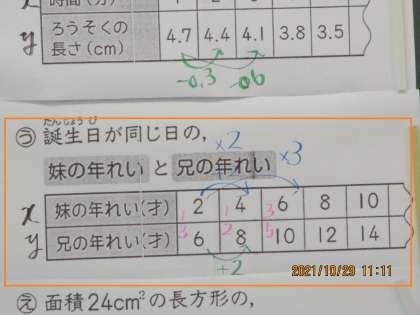 x
y
ろうそくの長さ(cm) 4.7 4.4 4.1 3.8 3.5
-0.3 -06
たんじょう び
う 誕生日が同じ日の,
×2
妹の年れい と 兄の年れい ×3
x 妹の年れい(才) 2 4 6 8 10
1 1 3
y 兄の年れい(才) 6 8 10 12 14
3 2 5
+2
2021/10/29 11:11
え 面積24cm²の長方形の,